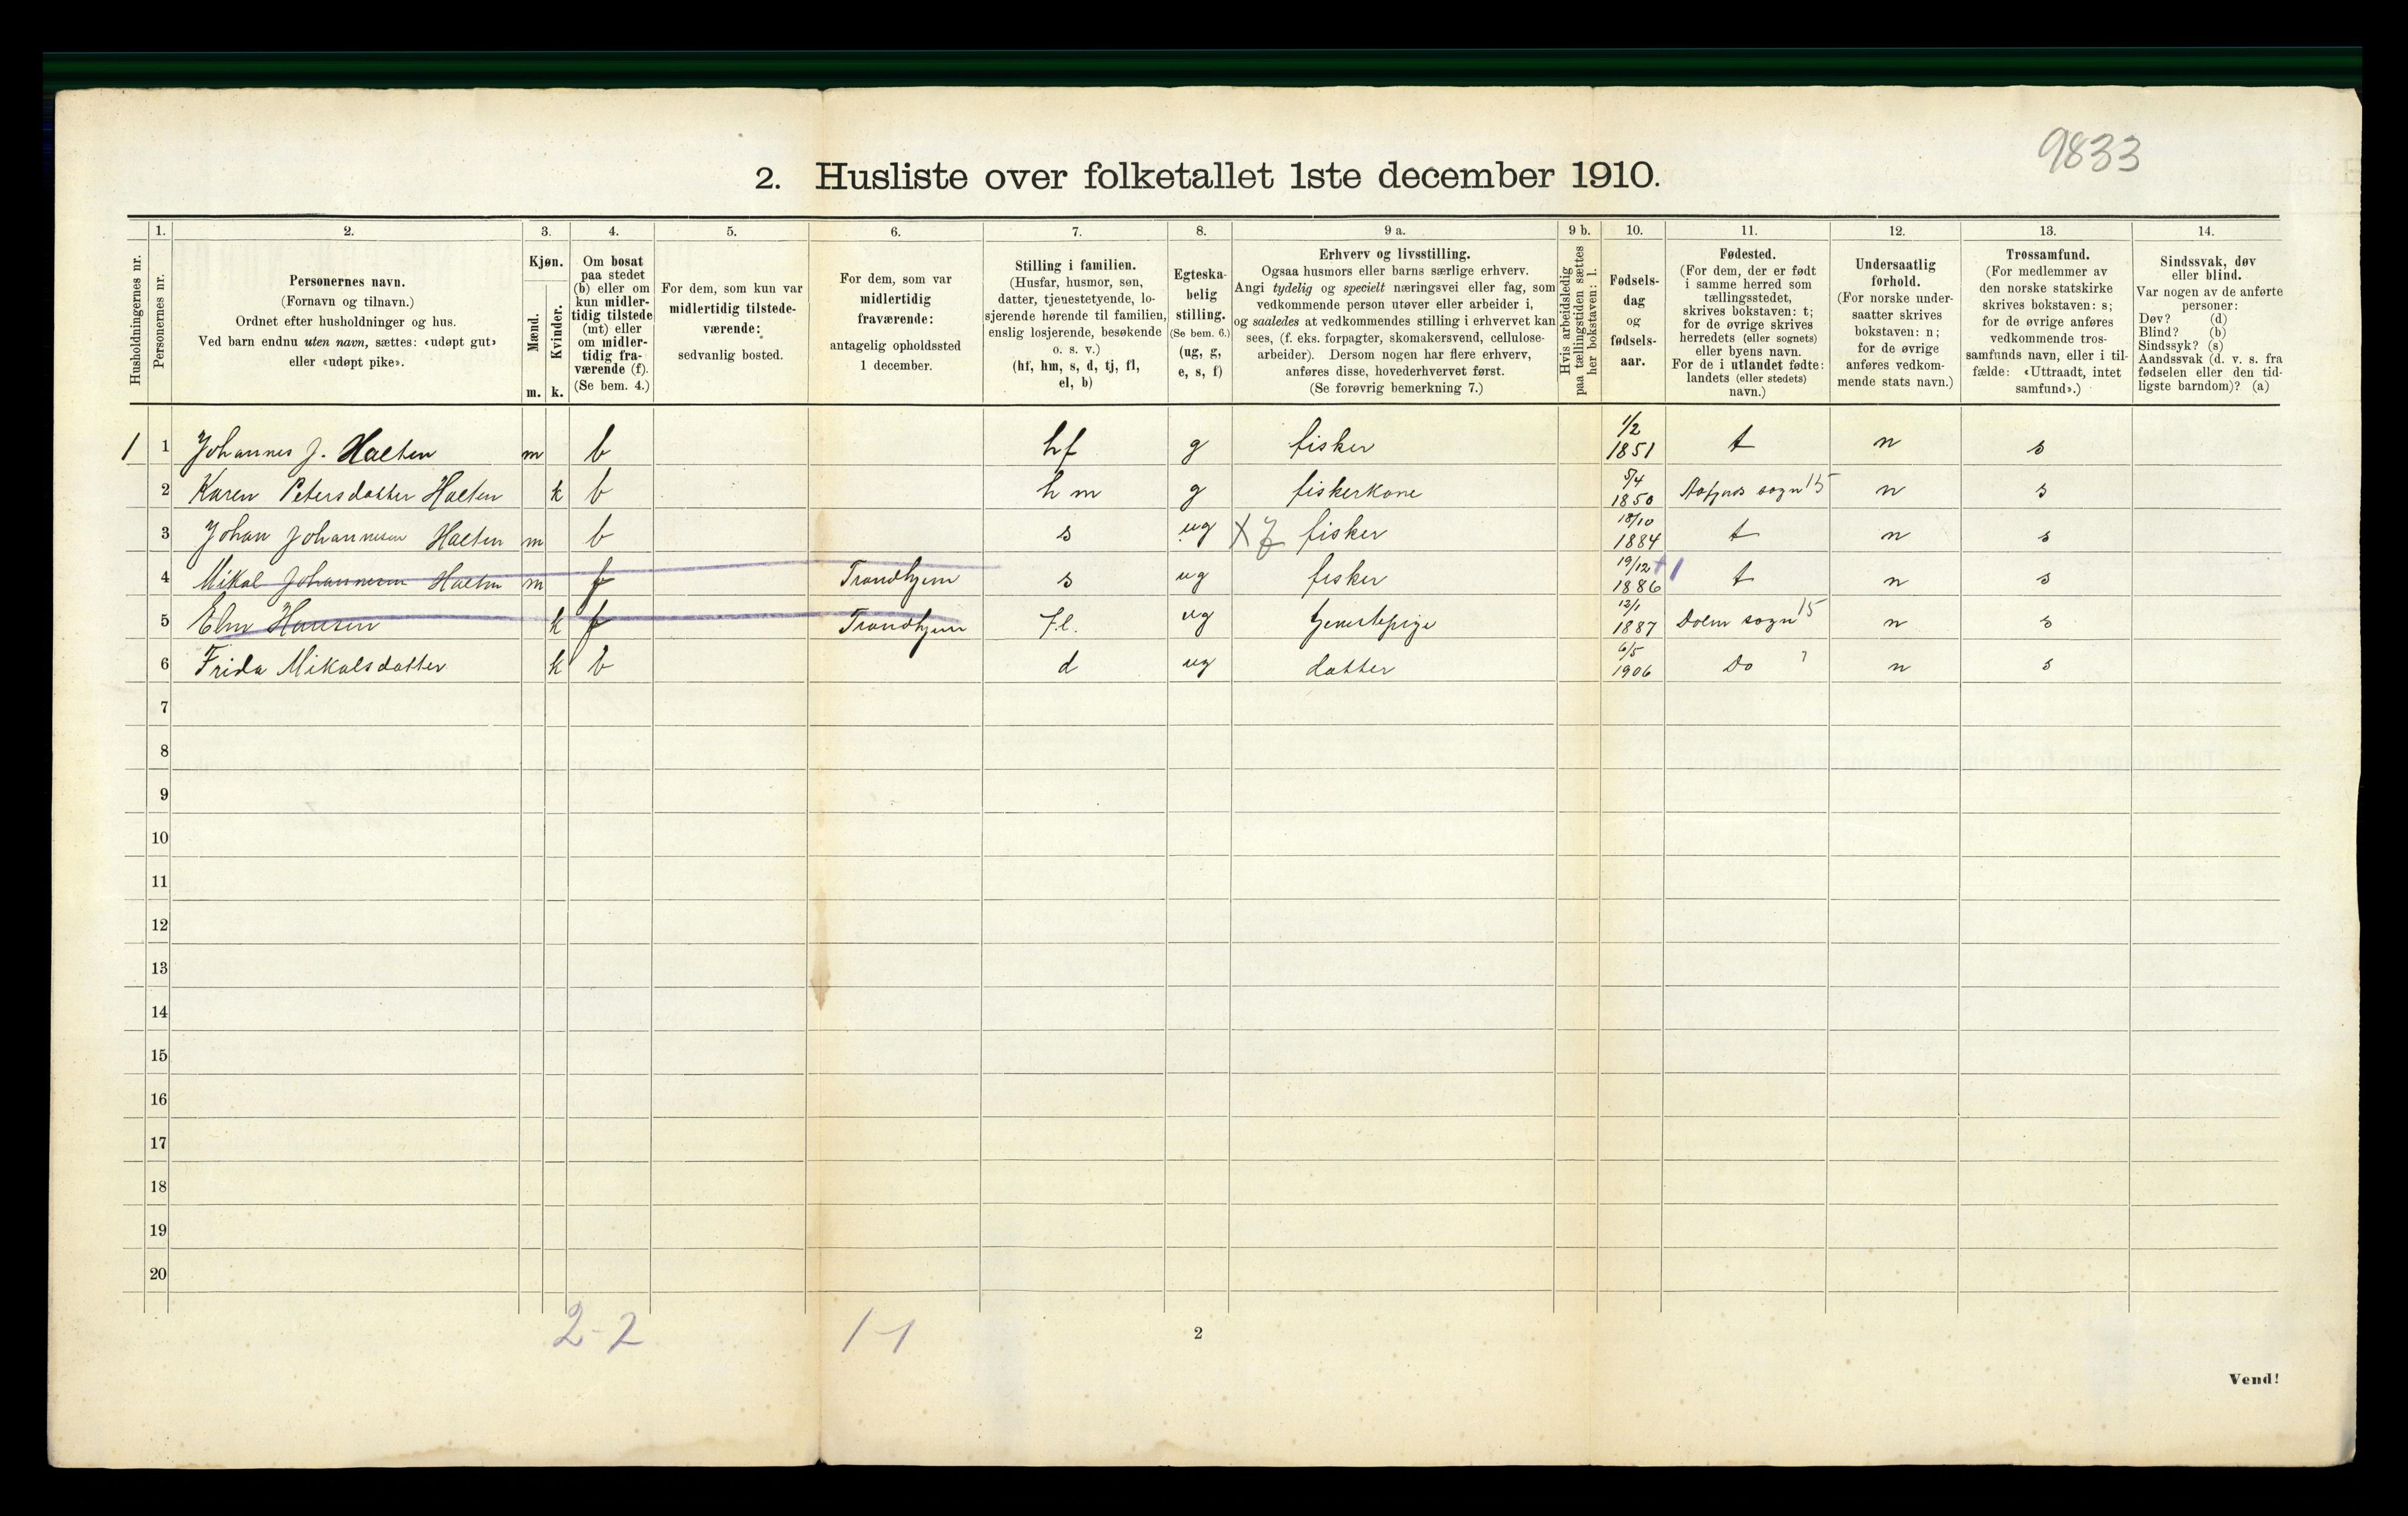 9833
2. Husliste over folketallet 1ste december 1910.
Husholdningernes nr.
1.
Personernes nr.
2.
Personernes navn.
(Fornavn og tilnavn.)
Ordnet efter husholdninger og hus.
Ved barn endnu uten navn, sættes: «udøpt gut»
eller «udøpt pike».
3.
Kjøn.
Mænd.
Kvinder.
m. k.
4.
Om bosat
paa stedet
(b) eller om
kun midler-
tidig tilstede
(mt) eller
om midler-
tidig fra-
værende (f).
(Se bem. 4.)
5.
For dem, som kun var
midlertidig tilstede-
værende:
sedvanlig bosted.
6.
For dem, som var
midlertidig
fraværende:
antagelig opholdssted
1 december.
7.
Stilling i familien.
(Husfar, husmor, søn,
datter, tjenestetyende, lo-
sjerende hørende til familien,
enslig losjerende, besøkende
o. s. v.)
(hf, hm, s, d, tj, fl,
el, b)
8.
Egteska-
belig
stilling.
(Se bem. 6.)
(ug, g,
e, s, f)
9 a.
Erhverv og livsstilling.
Ogsaa husmors eller barns særlige erhverv.
Angi tydelig og specielt næringsvei eller fag, som
vedkommende person utøver eller arbeider i,
og saaledes at vedkommendes stilling i erhvervet kan
sees, (f. eks. forpagter, skomakersvend, cellulose-
arbeider). Dersom nogen har flere erhverv,
anføres disse, hovederhvervet først.
(Se forøvrig bemerkning 7.)
9 b.
Hvis arbeidsledig
paa tællingstiden sættes
her bokstaven: l.
10.
Fødsels-
dag
og
fødsels-
aar.
11.
Fødested.
(For dem, der er født
i samme herred som
tællingsstedet,
skrives bokstaven: t;
for de øvrige skrives
herredets (eller sognets)
eller byens navn.
For de i utlandet fødte:
landets (eller stedets)
navn.)
12.
Undersaatlig
forhold.
(For norske under-
saatter skrives
bokstaven: n;
for de øvrige
anføres vedkom-
mende stats navn.)
13.
Trossamfund.
(For medlemmer av
den norske statskirke
skrives bokstaven: s;
for de øvrige anføres
vedkommende tros-
samfunds navn, eller i til-
fælde: «Uttraadt, intet
samfund».)
14.
Sindssvak, døv
eller blind.
Var nogen av de anførte
personer:
Døv? (d)
Blind? (b)
Sindssyk? (s)
Aandssvak (d. v. s. fra
fødselen eller den tid-
ligste barndom)? (a)
1 1 Johannes J. Halten m b hf g fisker 1/2 1851 t n s
2 Karen Petersdatter Halten k b hm g fiskerkone 5/4 1850 sogn 15 n s
3 Johan Johannesen Halten m b s ug X fisker 18/10 1884 t n s
4 Mikal Johannesen Halten m f Trondhjem s ug fisker 19/12 1886 +1 t n s
5 Hansen k f Trondhjem fl. ug tjenestepige 12/1 1887 Dolm sogn 15 n s
6 Frida Mikalsdatter k b d ug datter 6/5 1906 Do n s
7
8
9
10
11
12
13
14
15
16
17
18
19
20
2-2 1-1
2
Vend!